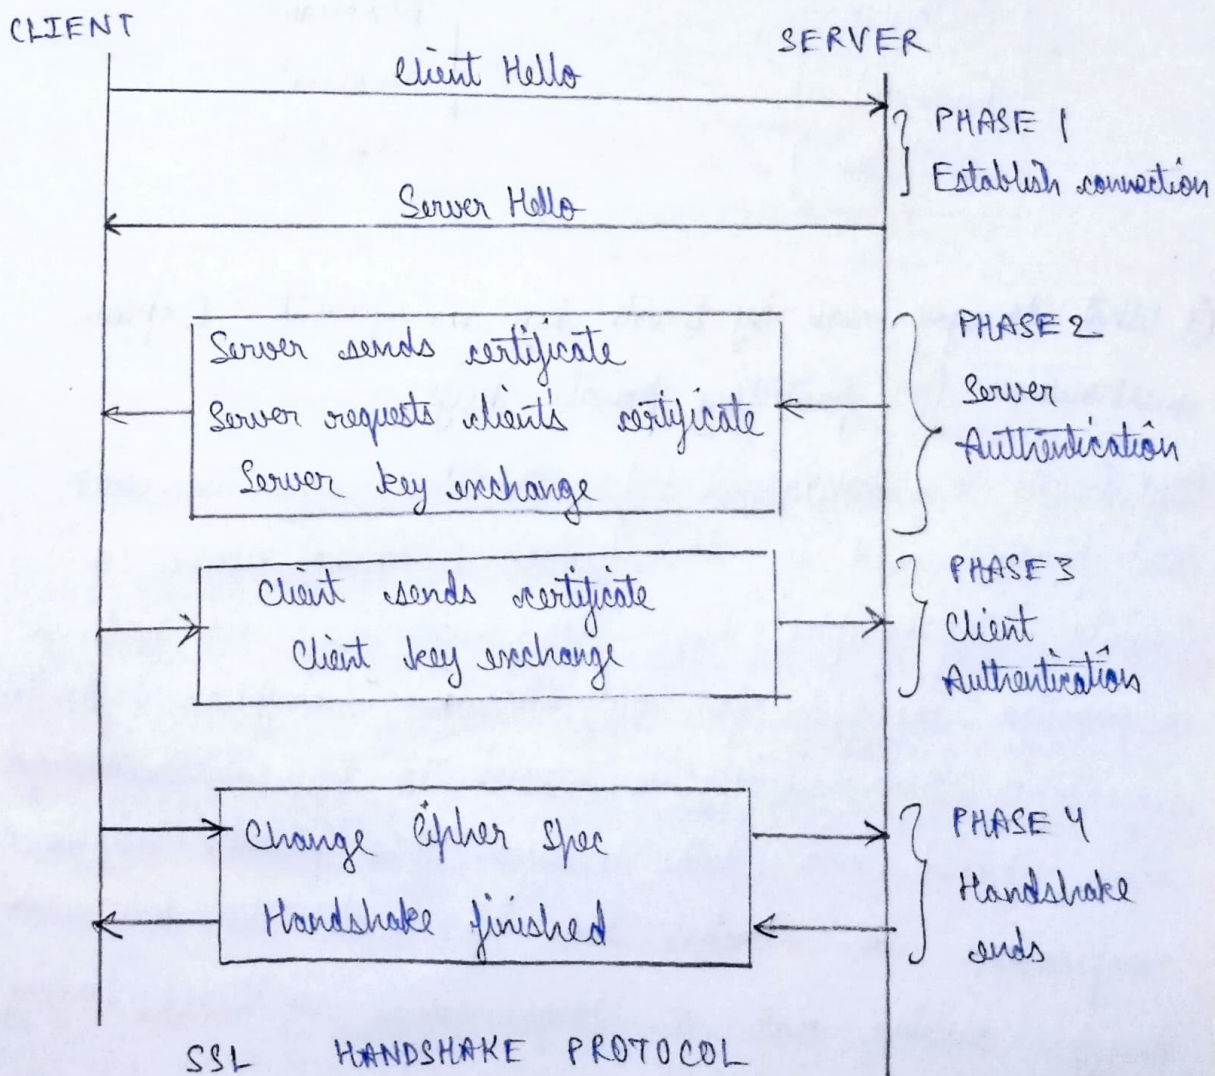 CLIENT
SERVER
Client Hello
PHASE 1
Establish connection
Server Hello
Server sends certificate
Server requests client's certificate
Server key exchange
PHASE 2
Server
Authentication
Client sends certificate
Client key exchange
PHASE 3
Client
Authentication
Change Cipher Spec
Handshake finished
PHASE 4
Handshake
ends
SSL HANDSHAKE PROTOCOL